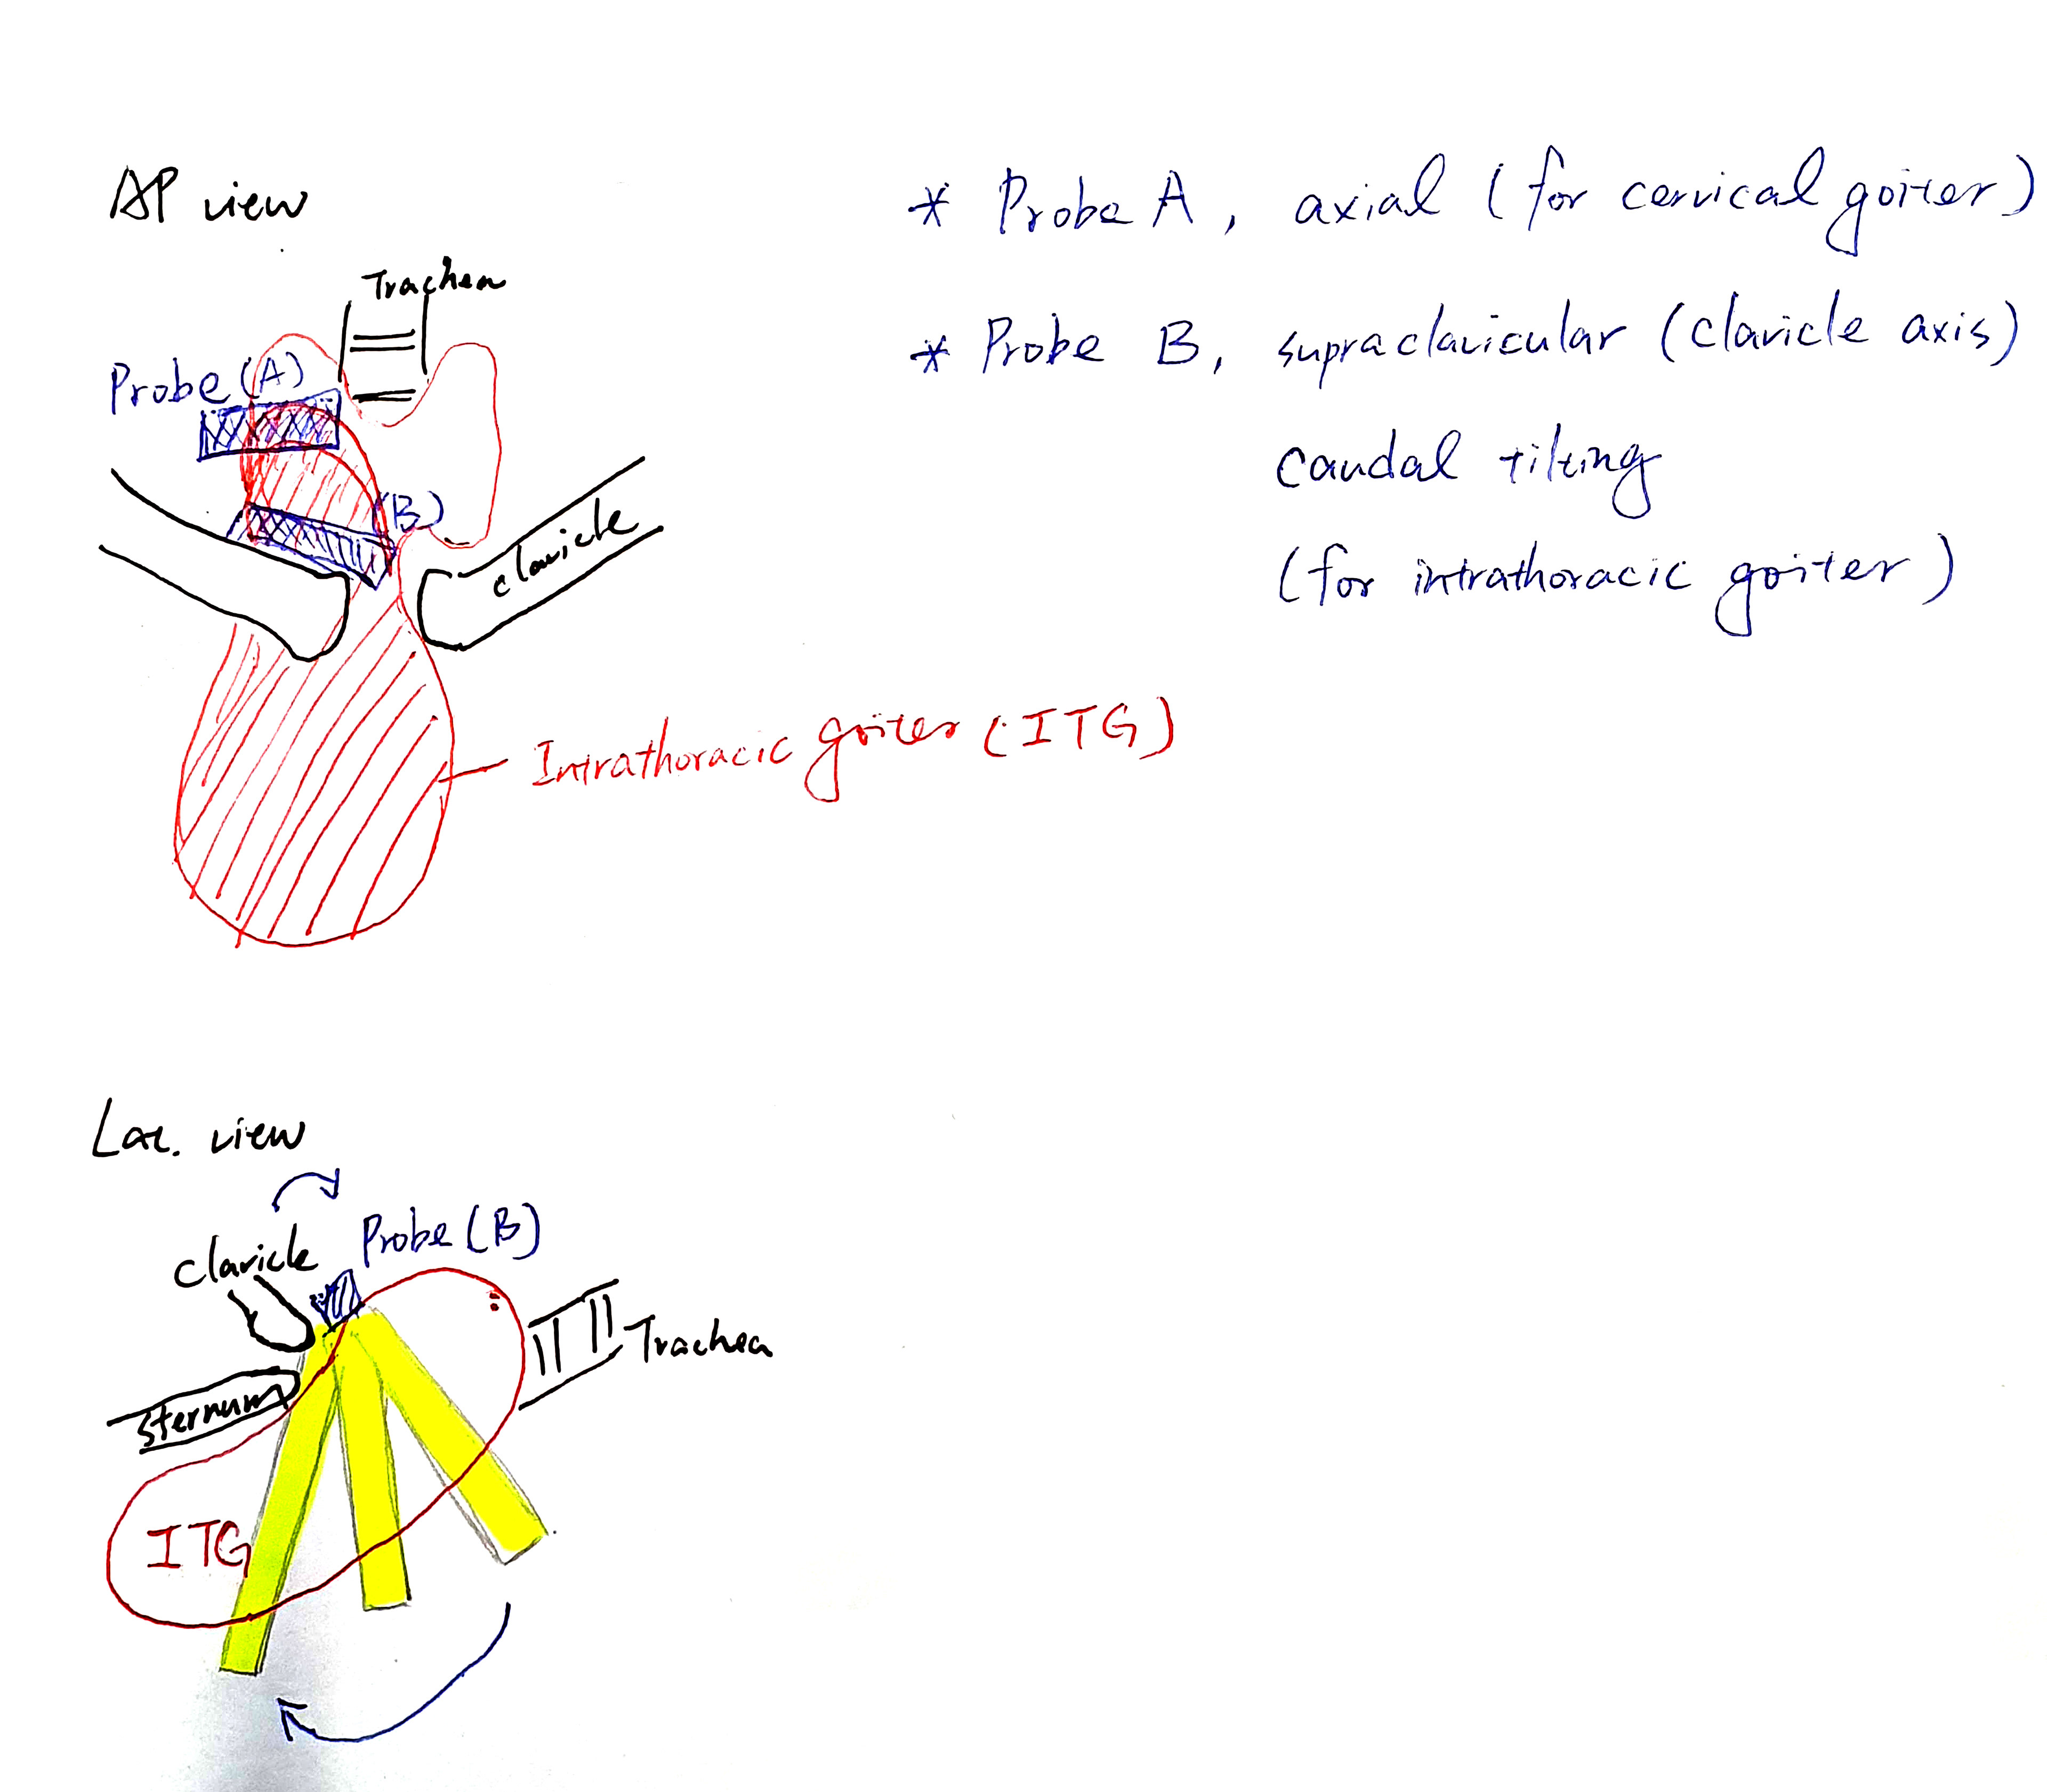 AP view
* Probe A, axial (for cervical goiter)
Trachea
* Probe B, supraclavicular (clavicle axis)
caudal tilting
(for intrathoracic goiter)
Probe (A)
(B)
clavicle
Intrathoracic goiter (ITG)
Lat. view
Probe (B)
clavicle
Trachea
sternum
ITG